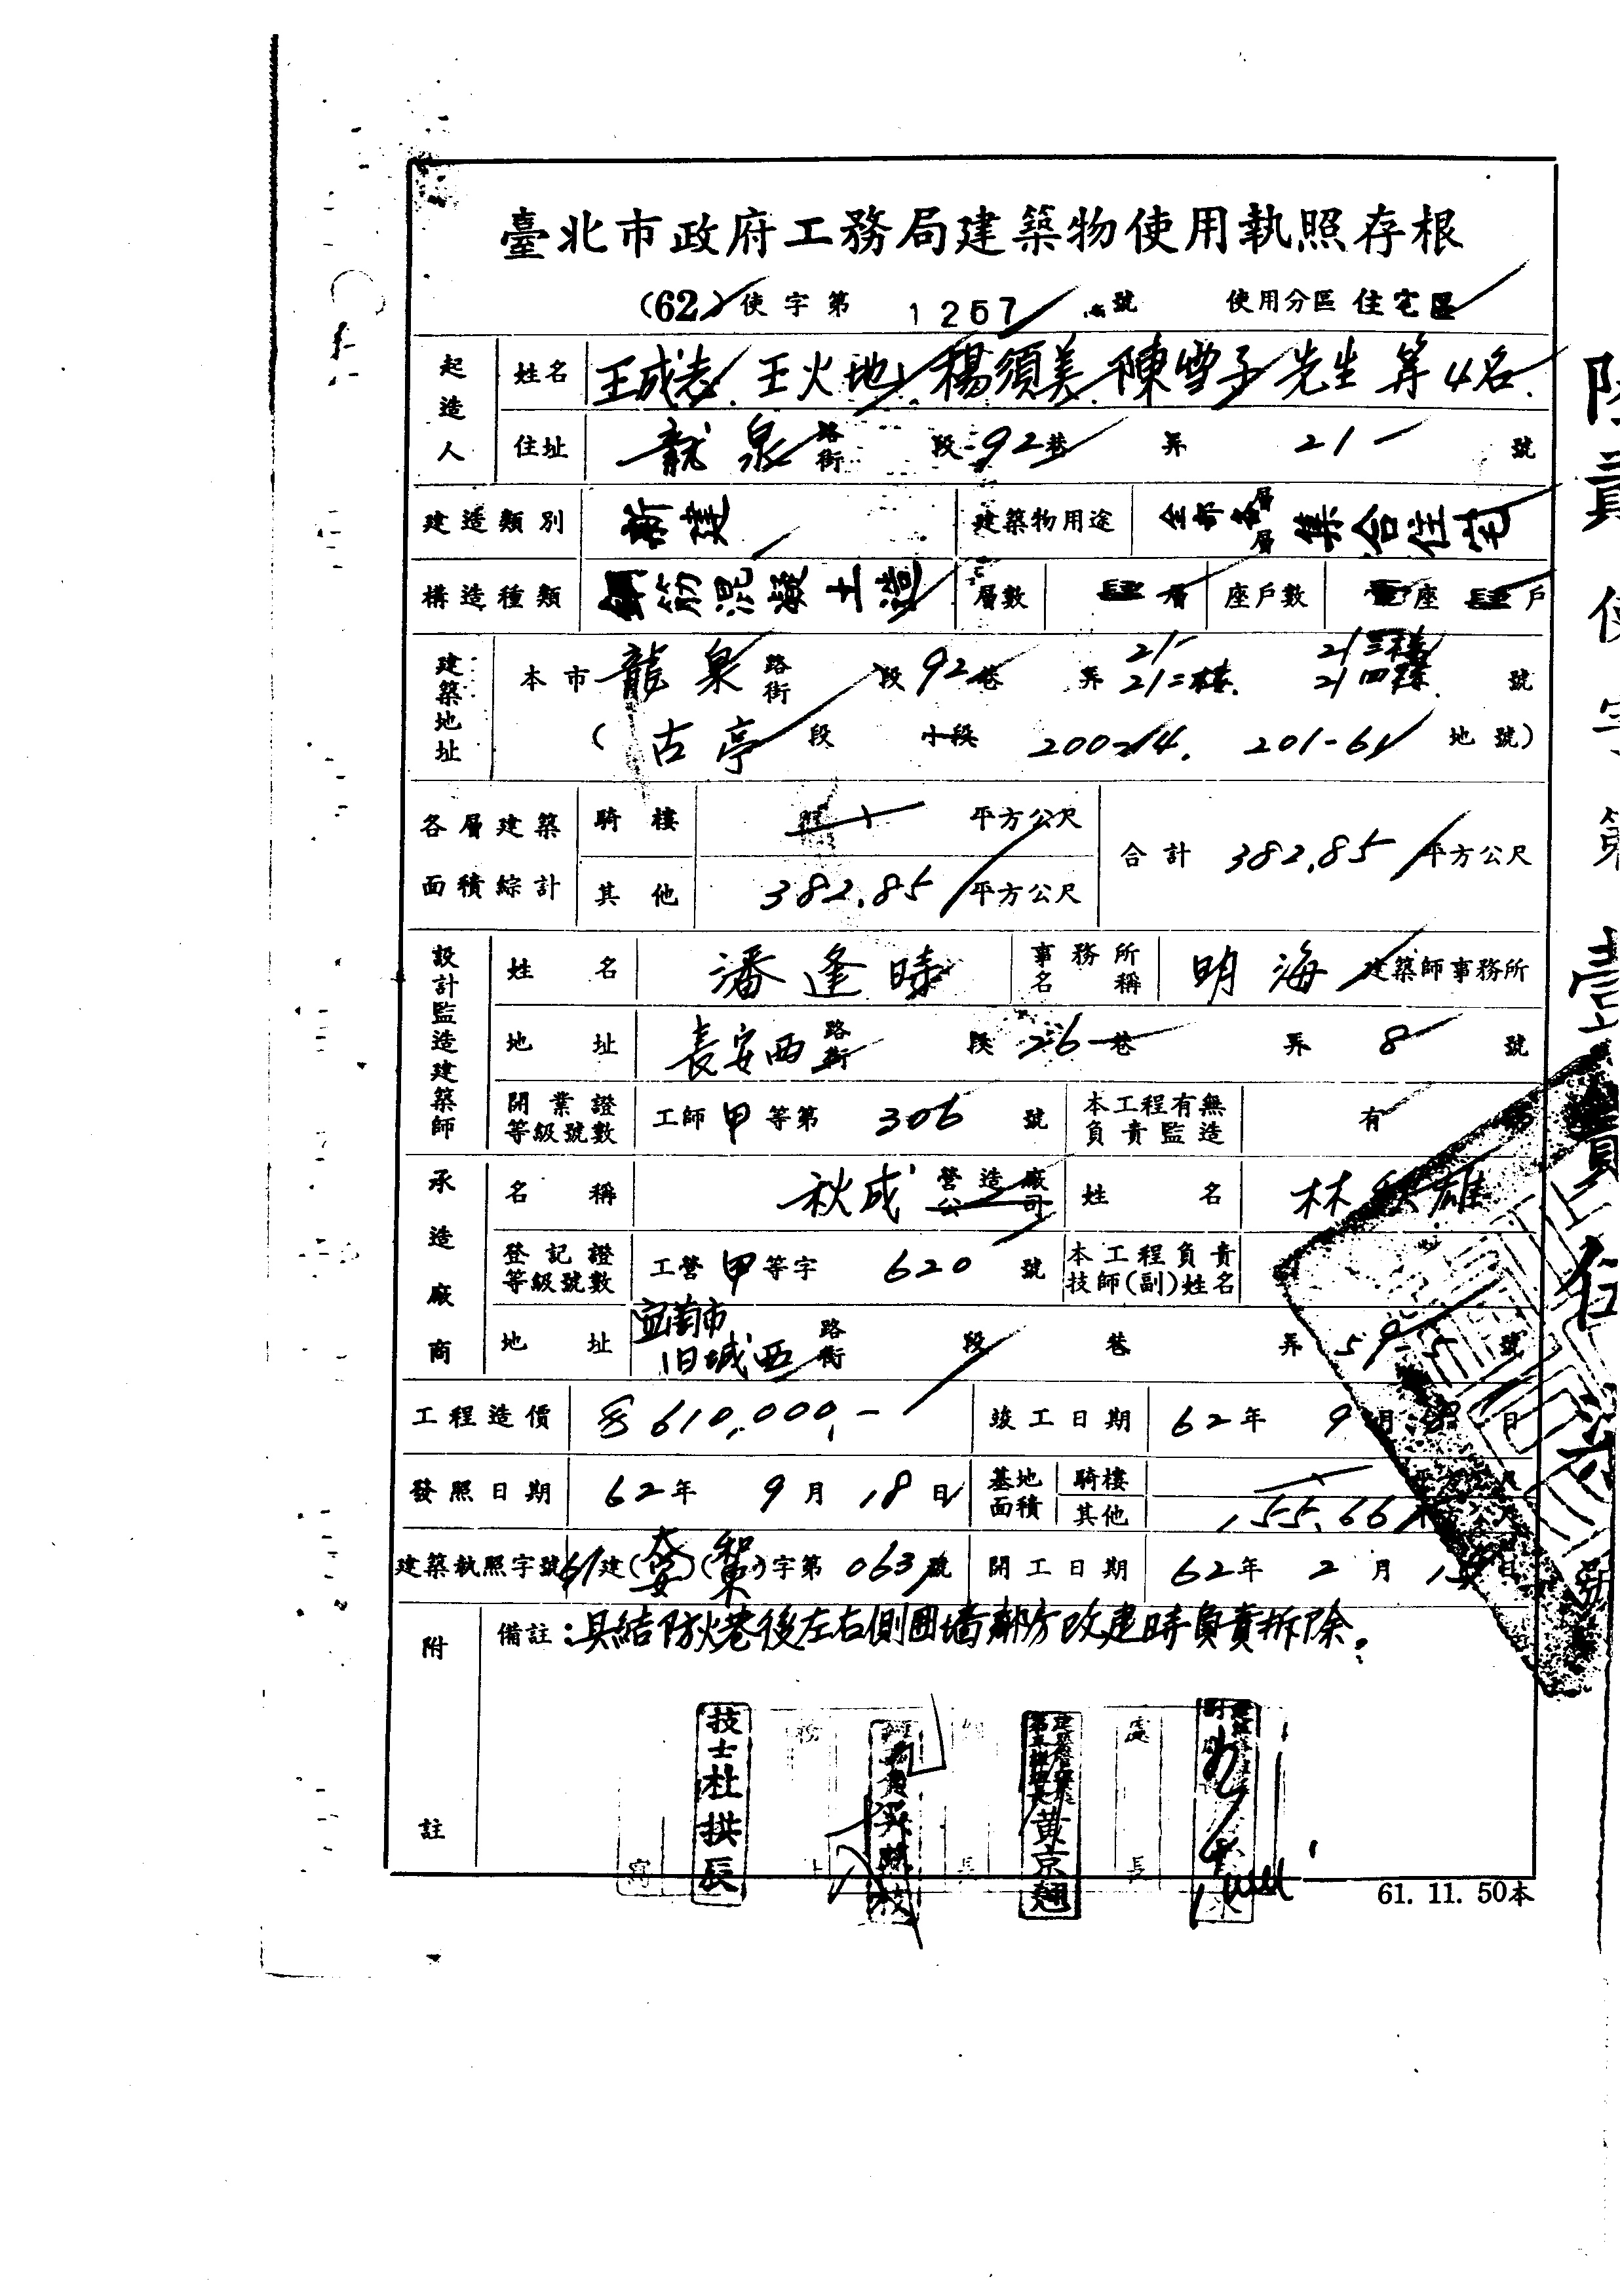 臺北市政府工務局建築物使用執照存根
(62)使字第 1257 號 使用分區 住宅區
起造人 姓名 王成志.王火地.楊須美.陳雪子先生等4名.
住址 龍泉路街 段92巷 弄 21 號
建造類別 新建 建築物用途 全部各層層集合住宅
構造種類 鋼筋混凝土造 層數 肆層 座戶數 壹座肆戶
建築地址 本市龍泉路街 段92巷 弄 21 21二樓. 21三樓 21四樓. 號
(古亭段 小段 200-14. 201-61 地號)
各層建築面積綜計 騎樓 平方公尺 合計 382.85 平方公尺
其他 382.85 平方公尺
設計監造建築師 姓名 潘逢時 事務所名稱 明海建築師事務所
地址 長安西路街 段26巷 弄 8 號
開業證等級號數 工師甲等第 306 號 本工程有無負責監造 有
承造廠商 名稱 秋成營造廠公司 姓名 林 雄
登記證等級號數 工營甲等字 620 號 本工程負責技師(副)姓名
地址 旧城西路街 段 巷 弄 59-5 號
工程造價 610,000,- 竣工日期 62年 9月 日
發照日期 62年 9月 18日 基地面積 騎樓
其他 155.66
建築執照字號 61建( )( )字第 063號 開工日期 62年 2月 日
附註 備註:具結防火巷後左右側圍墻鄰房改建時負責拆除.
技士杜拱辰
黃京翹
處長
61. 11. 50本
使字第壹